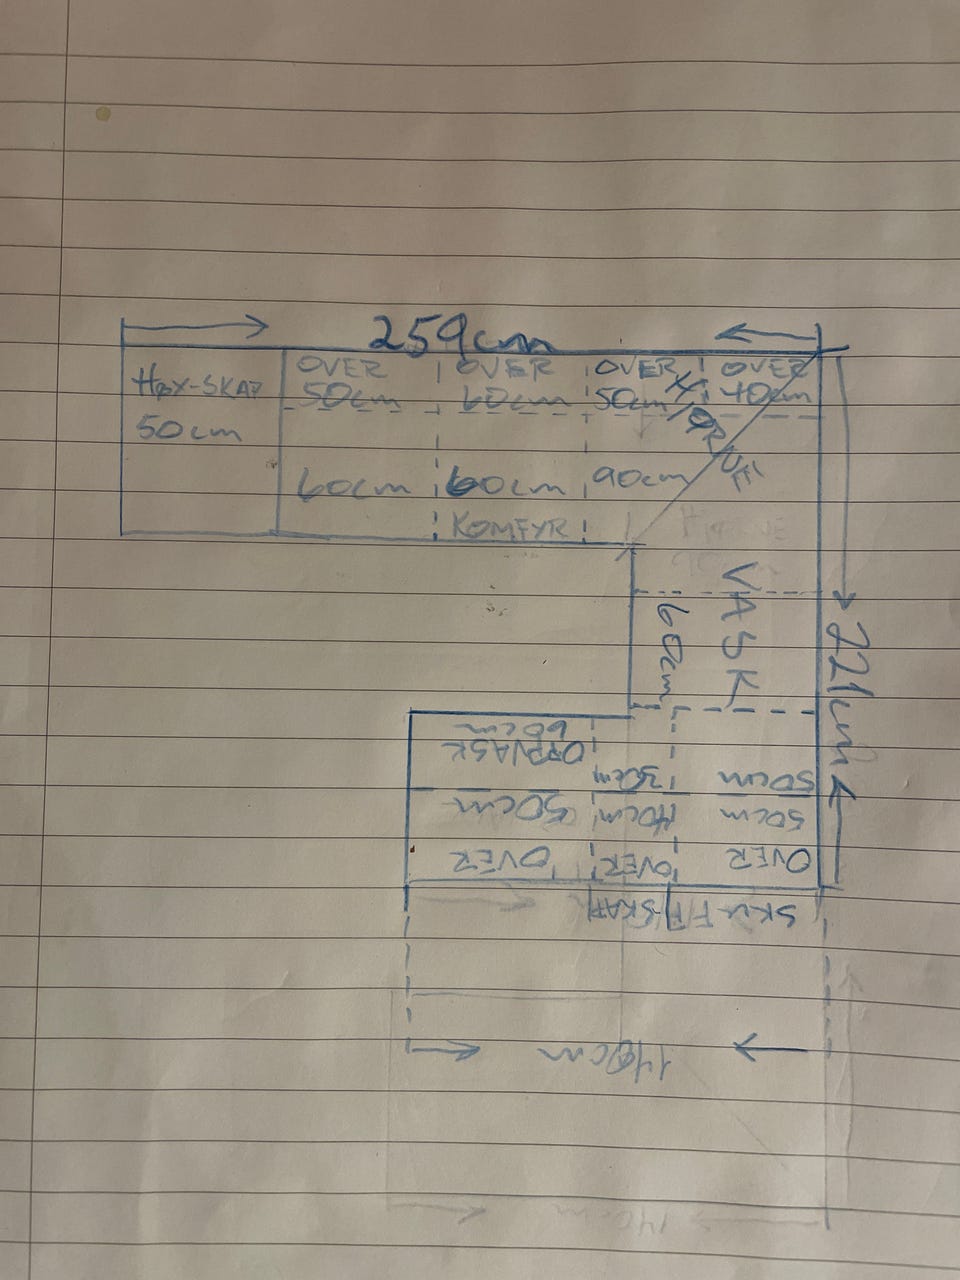 259cm
HØX-SKAP
50cm
OVER
50cm
OVER
60cm
OVER
50cm
OVER
40cm
60cm
60cm
90cm
KOMFYR
VASK
60cm
221cm
60cm
OPPVASK
30cm
50cm
50cm
40cm
50cm
OVER
OVER
OVER
140cm
140cm